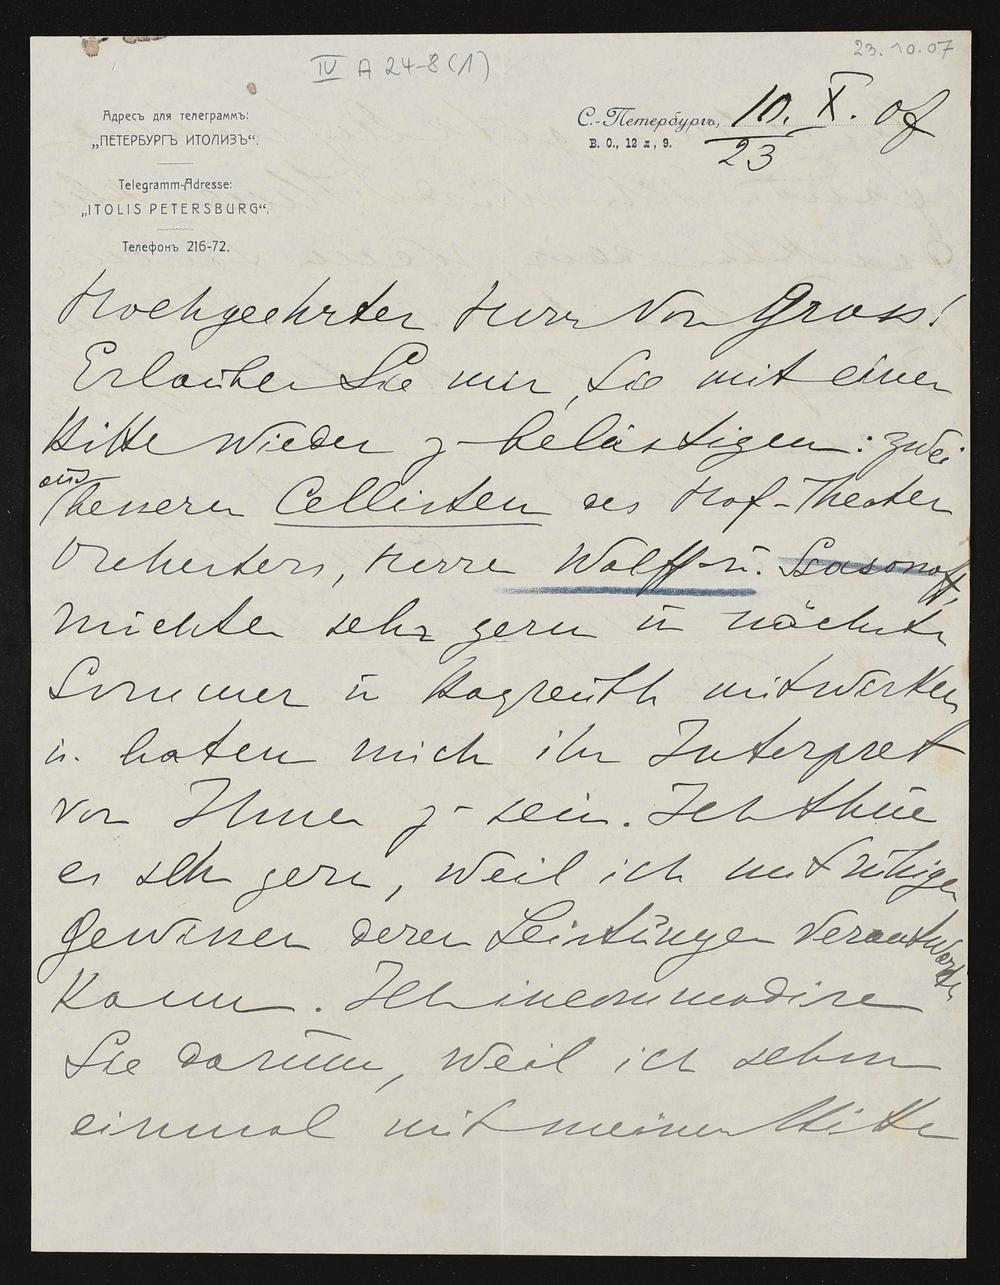 23.10.07
IV A 24-8 (1)
Адресъ для телеграммъ:
„ПЕТЕРБУРГЪ ИТОЛИЗЪ“.
Telegramm-Adresse:
„ITOLIS PETERSBURG“.
Телефонъ 216-72.
С.-Петербургъ, 10. X. 07
23
В. О., 12 л., 9.
Hochgeehrter Herr von Gross!
Erlauben Sie mir, Sie mit einer
Bitte wieder z. belästigen: zwei
aus
besseren Cellisten des Hof-Theater
Orchesters, Herrn Wolff u. Sasonoff,
möchten sehr gern in nächsten
Sommer in Bayreuth mitwirken
u. baten mich ihr Interpret
vor Ihnen z. sein. Ich thue
es sehr gern, weil ich mit ruhigen
Gewissen deren Leistungen verantworten
kann. Ich incommodire
Sie darum, weil ich schon
einmal mit meinen Bitte